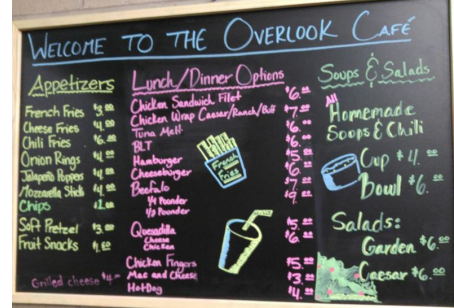 WELCOME TO THE OVERLOOK CAFÉ
Appetizers
French Fries $3.00
Cheese Fries $4.00
Chili Fries $6.00
Onion Rings $4.00
Jalapeño Poppers $4.00
Mozzarella Sticks $4.00
Chips
Soft Pretzel $3.00
Fruit Snacks
Grilled cheese $4.00
Lunch/Dinner Options
Chicken Sandwich Filet $6.00
Chicken Wrap Caesar/Ranch/Buff $7.00
Tuna Melt $6.00
BLT $6.00
Hamburger $5.00
Cheeseburger $6.00
Beefalo
1/4 Pounder $7.00
1/3 Pounder
Quesadilla
Cheese $5.00
Chicken $6.00
Chicken Fingers $5.00
Mac and Cheese $3.00
HotDog $4.00
French Fries
Soups & Salads
All
Homemade
Soups & Chili
Cup $4.00
Bowl $6.00
Salads:
Garden $6.00
Caesar $6.00